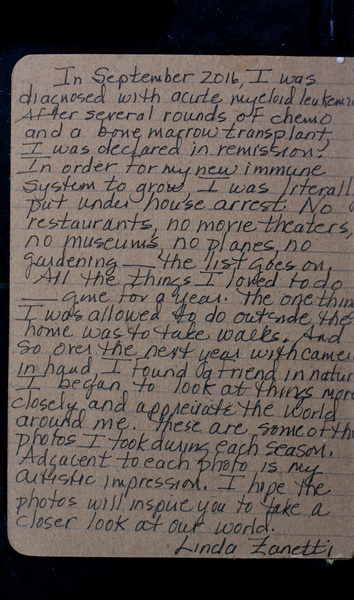 In September 2016, I was
diagnosed with acute myeloid leukemi
After several rounds of chemo
and a bone marrow transplant
I was declared in remission.
In order for my new immune
system to grow, I was literall
put under house arrest. No
restaurants, no movie theaters,
no museums, no planes, no
gardening — the list goes on.
All the things I loved to do
— gone for a year. The one thin
I was allowed to do outside the
home was to take walks. And
so over the next year with camer
in hand, I found a friend in natur
I began to look at things more
closely and appreciate the world
around me. These are some of th
photos I took during each season.
Adjacent to each photo is my
artistic impression. I hope the
photos will inspire you to take a
closer look at our world.
Linda Zanetti